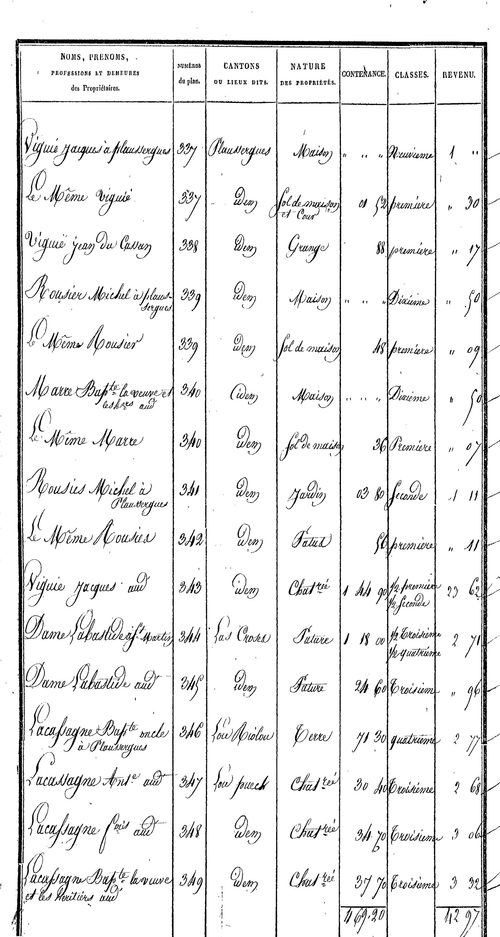 NOMS, PRENOMS, PROFESSIONS ET DEMEURES des Propriétaires. NUMÉROS du plan. CANTONS OU LIEUX DITS. NATURE DES PROPRIÉTÉS. CONTENANCE. CLASSES. REVENU.
Viguié Jacques à plaussergues 337 Plaussergues Maison " " " Neuvieme 1 "
Le Même Viguié 337 idem Sol de maison et Cour 01 52 première " 30
Viguié Jean du Cassan 338 idem Grange 88 première " 17
Rousier Michel à plaussergues 339 idem Maison " " " Dixième " 50
Le Même Rousier 339 idem Sol de maison 48 première " 09
Marre Bapte la veuve et les hers aud 340 idem Maison " " " Dixième " 50
Le Même Marre 340 idem Sol de maison 36 Première " 07
Rousies Michel à Plaussergues 341 idem Jardin 03 80 Seconde 1 11
Le Même Rousies 342 idem Patus 56 première " 11
Viguie Jacques aud 343 idem Chatrée 1 44 90 1/2 première 1/2 Seconde 23 62
Dame Labastide à St Martin 344 Las Croses Pature 1 18 00 1/2 Troisième 1/2 quatrième 2 71
Dame Labastide aud 345 idem Pature 24 60 Troisième " 96
Lacassagne Bapte oncle à Plaussergues 346 Lou Riolou Terre 71 30 quatrième 2 77
Lacassagne Ante aud 347 Lou puech Chatrée 30 40 Troisième 2 68
Lacassagne fçois aud 348 idem Chatrée 34 70 Troisième 3 06
Lacassagne Bapte la veuve et les héritiers aud 349 idem Chatrée 37 70 Troisième 3 32
469.20 42 97